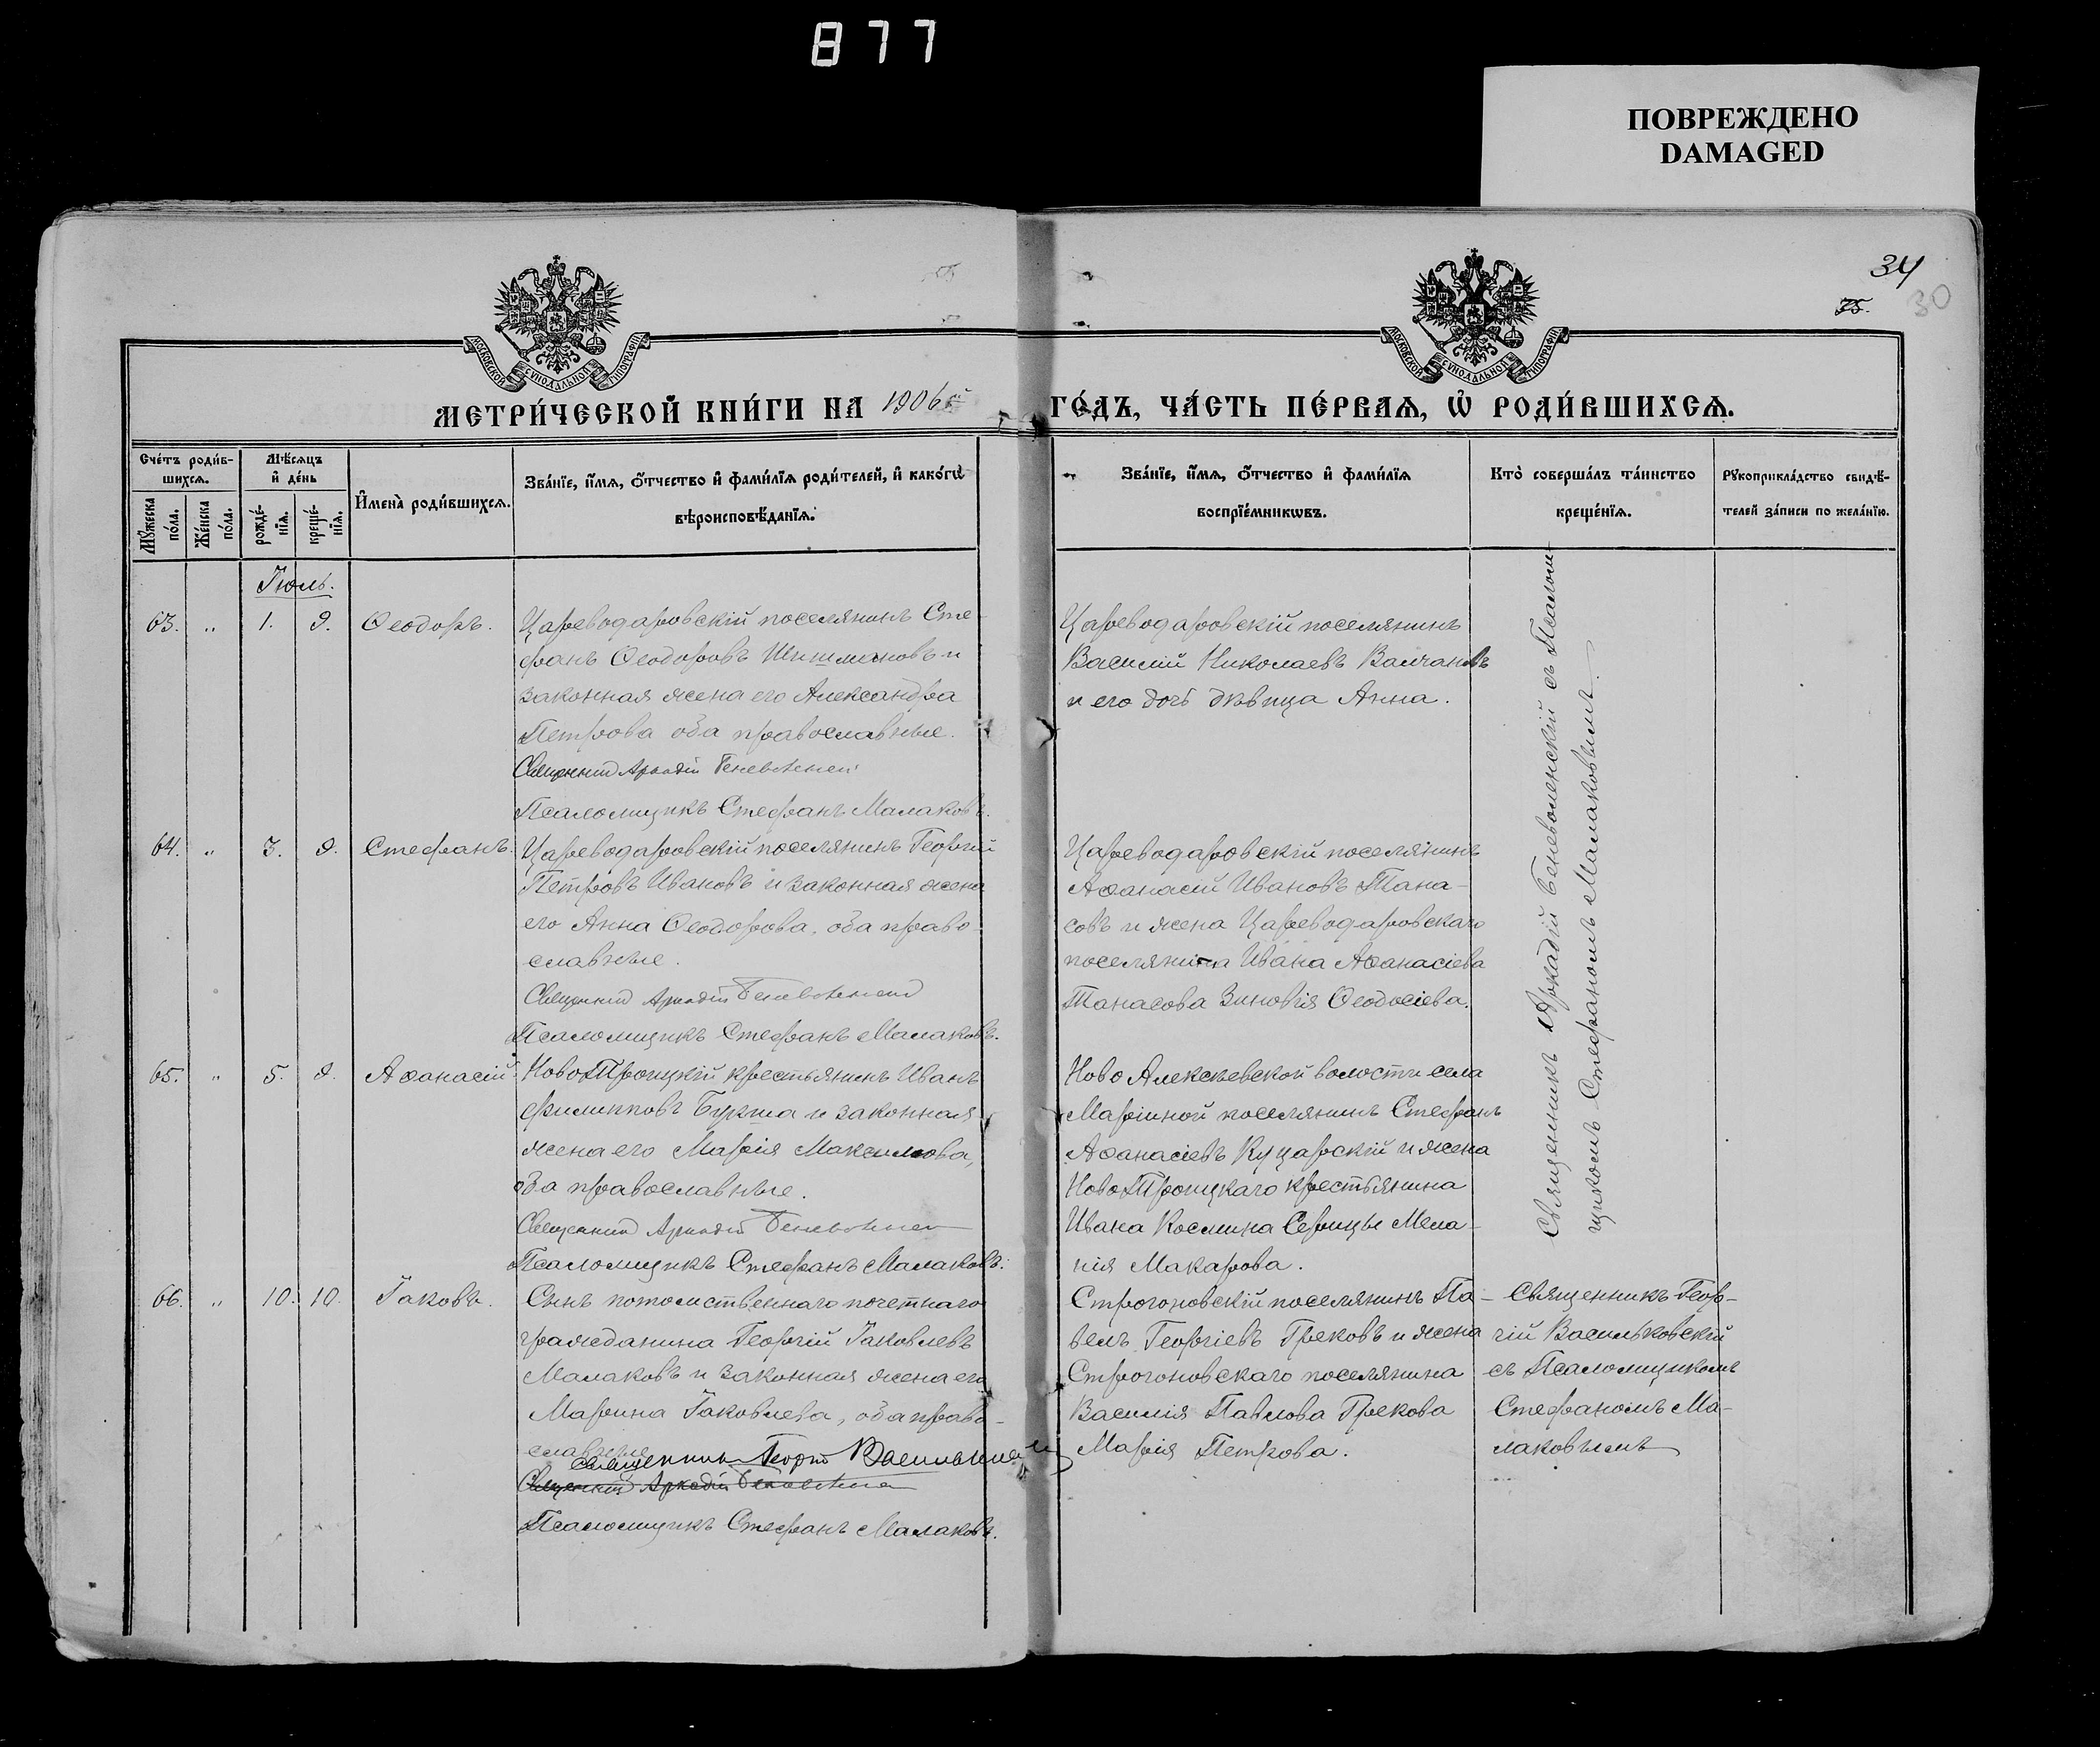 877
ПОВРЕЖДЕНО
DAMAGED
34
35.
30
МОСКОВСКОЙ СѴНОДАЛЬНОЙ ТИПОГРАФІИ
МОСКОВСКОЙ СѴНОДАЛЬНОЙ ТИПОГРАФІИ
МЕТРИ́ЧЕСКОЙ КНИ́ГИ НА 1906й ГО́ДЪ, ЧА́СТЬ ПЕ́РВАѦ, Ѡ҆ РОДИ́ВШИХСѦ.
Сче́тъ роди́в-
шихсѧ.
Мꙋ́жеска по́ла.
Же́нска по́ла.
Мѣ́сѧцъ
и҆ де́нь
рожде́-
нїѧ.
креще́-
нїѧ.
И҆мена̀ роди́вшихсѧ.
Зва́нїе, и҆́мѧ, ѻ҆́тчество и҆ фами́лїѧ роди́телей, и҆ како́гѡ
вѣроисповѣ́данїѧ.
Зва́нїе, и҆́мѧ, ѻ҆́тчество и҆ фами́лїѧ
воспрїе́мникѡвъ.
Кто̀ соверша́лъ та́инство
креще́нїѧ.
Рꙋкоприкла́дство свидѣ́-
телей за́писи по жела́нїю.
Іюль.
63. „ 1. 9. Ѳеодоръ.
Цареводаровскій поселянинъ Сте-
фанъ Ѳеодоровъ Шишмановъ и
законная жена его Александра
Петрова оба православные.
Священникъ Аркадій Беневоленскій
Псаломщикъ Стефанъ Малаковъ.
Цареводаровскій поселянинъ
Василій Николаевъ Валчановъ
и его дочь дѣвица Анна.
64. „ 3. 9. Стефанъ.
Цареводаровскій поселянинъ Георгій
Петровъ Ивановъ и законная жена
его Анна Ѳеодорова, оба право-
славные.
Священникъ Аркадій Беневоленскій
Псаломщикъ Стефанъ Малаковъ.
Цареводаровскій поселянинъ
Аѳанасій Ивановъ Тана-
совъ и жена Цареводаровскаго
поселянина Ивана Аѳанасіева
Танасова Зиновія Ѳеодосіева.
65. „ 5. 9. Аѳанасій.
НовоТроицкій крестьянинъ Иванъ
Филипповъ Буржа и законная
жена его Марія Максимова,
оба православные.
Священникъ Аркадій Беневоленскій
Псаломщикъ Стефанъ Малаковъ.
Ново Алексѣевской волости села
Маріиной поселянинъ Стефанъ
Аѳанасіевъ Куцарскій и жена
НовоТроицкаго крестьянина
Ивана Космина Серицы Мела-
нія Макарова.
Священникъ Аркадій Беневоленскій съ Псалом-
щикомъ Стефаномъ Малаковымъ.
66. „ 10. 10. Іаковъ.
Сынъ потомственнаго почетнаго
гражданина Георгій Іаковлевъ
Малаковъ и законная жена его
Марина Іаковлева, оба право-
славные
Священникъ Георгій Васильковскій
Священникъ Аркадій Беневоленскій
Псаломщикъ Стефанъ Малаковъ.
Строгоновскій поселянинъ Па-
велъ Георгіевъ Грековъ и жена
Строгоновскаго поселянина
Василія Павлова Грекова
Марія Петрова.
Священникъ Геор-
гій Васильковскій
съ Псаломщикомъ
Стефаномъ Ма-
лаковымъ